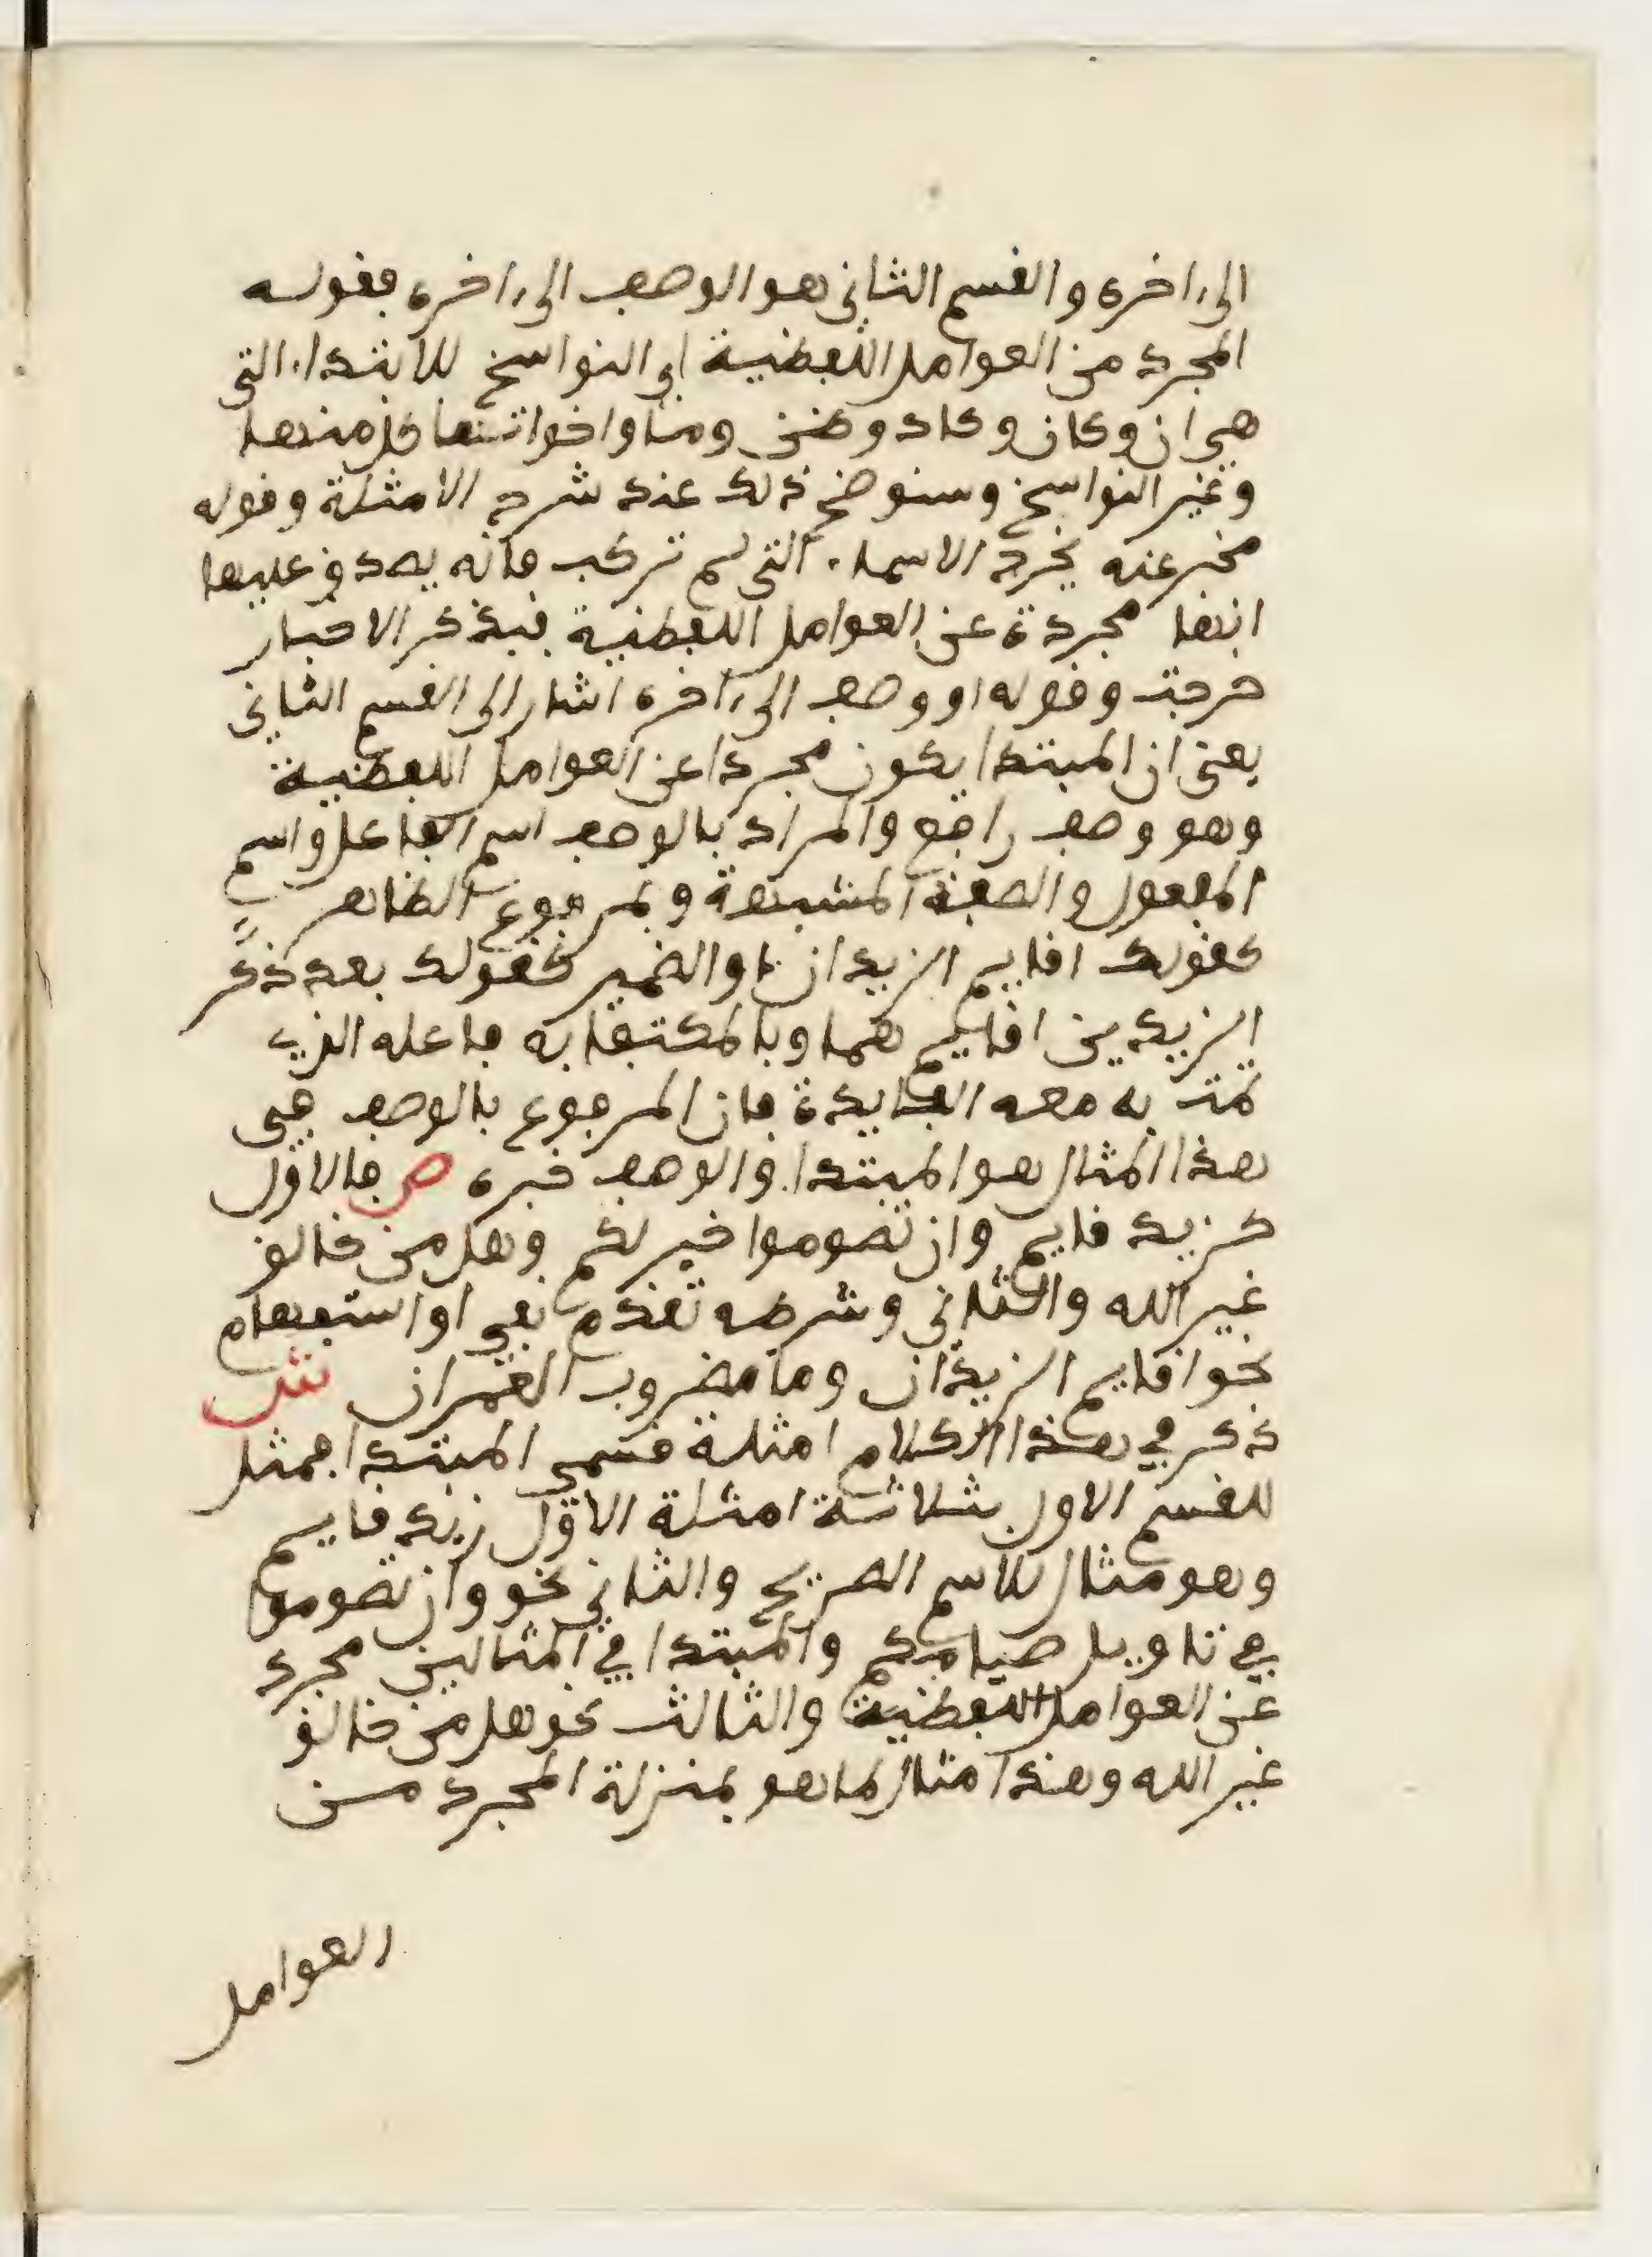 الى اخره والقسم الثاني هو الوصف الى اخره فقوله
المجرد من العوامل اللفظية اي النواسخ للابتداء التي
هي ان وكان وكاد وظن وما واخواتها كل منها
وغير النواسخ وسنوضح ذلك عند شرح الامثلة وقوله
مخبر عنه يخرج الاسماء التي لم تركب فانه يصدق عليها
انها مجردة عن العوامل اللفظية فبذكر الاخبار
خرجت وقوله او وصف الى اخره اشار الى القسم الثاني
يعني ان المبتدا يكون مجردا عن العوامل اللفظية
وهو وصف رافع والمراد بالوصف اسم الفاعل واسم
المفعول والصفة المشبهة وبمرفوع الظاهر
كقولك اقايم الزيدان او الضمير كقولك بعد ذكر
الزيدين اقايم هما وبالمكتفا به فاعله الذي
تمت به معه الفايدة فان المرفوع بالوصف في
هذا المثال هو المبتدا والوصف خبره ص فالاول
كزيد قايم وان تصوموا خير لكم وهل من خالق
غير الله والثاني وشرطه تقدم نفي او استفهام
نحو اقايم الزيدان وما مضروب العمران ش
ذكر في هذا الكلام امثلة قسمي المبتدا فمثل
للقسم الاول بثلاثة امثلة الاول زيد قايم
وهو مثال للاسم الصريح والثاني نحو وان تصوموا
في تاويل صيامكم والمبتدا في المثالين مجرد
عن العوامل اللفظية والثالث نحو هل من خالق
غير الله وهذا مثال لما هو بمنزلة المجرد من
العوامل